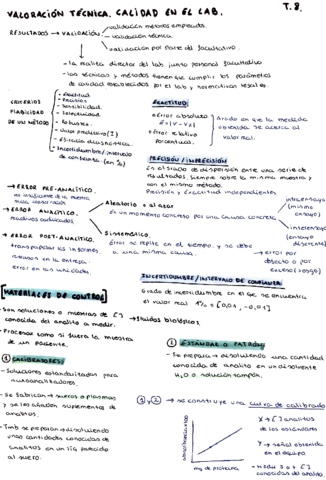 VALORACIÓN TÉCNICA. CALIDAD EN EL LAB. T.8.
validación métodos empleados.
RESULTADOS → VALIDACIÓN → validación técnica
validación por parte del facultativo.
- La realiza director del lab. junto personal facultativo
- Las técnicas y métodos tienen que cumplir los parámetros
de calidad establecidos por el lab y normativas legales.
CRITERIOS
FIABILIDAD
DE UN MÉTODO
- Exactitud
- Precisión
- Sensibilidad.
- Linealidad
- Robustez.
- Valor predictivo (I)
- Eficacia diagnóstica
- Incertidumbre/intervalo
de confianza (en %)
EXACTITUD:
error absoluto
E=|V-Vi|
error relativo
Porcentual.
Grado en que la medida
obtenida se acerca al
valor real.
PRECISIÓN / IMPRECISIÓN
Es el grado de dispersión entre una serie de
resultados, siempre sobre la misma muestra y
con el mismo método.
Precisión y Exactitud independientes
intraensayo
(mismo
ensayo)
interensayo
(ensayo
diferente)
→ ERROR PRE-ANALÍTICO.
→ ERROR ANALÍTICO
reactivos caducados
→ ERROR POST-ANALÍTICO.
transpapelar los informes
retraso en la entrega
error en las unidades.
Aleatorio → al azar
Es un momento concreso por una causa concreta
Sistemático.
Error se repite en el tiempo. y se debe
a una misma causa.
→ error por
defecto o por
exceso (sesgo)
INCERTIDUMBRE / INTERVALO DE CONFIANZA.
Grado de incertidumbre en el que se encuentra
el valor real
MATERIALES DE CONTROL
- Son soluciones o muestras de [ ] → fluidos biológicos.
conocida del analito a medir.
- Procesar como si fuera la muestra
de un paciente.
① CALIBRADORES:
- Soluciones estandarizadas para
autoanalizadores.
- Se fabrican → sueros o plasmas
y se les añaden suplementos de
analitos.
- Tmb se preparan → disolviendo
unas cantidades conocidas de
analitos en un líq parecido
al suero.
② ESTÁNDAR O PATRÓN
- Se prepara → disolviendo una cantidad
conocida de analito en un disolvente
H₂O o solución tampón.
① y ② → se construye una curva de calibrado
X → [ ] analitos
de los estándares
Y → señal obtenida
en el equipo.
- Medir 3 o + [ ]
conocidas del analito.
mg de proteína